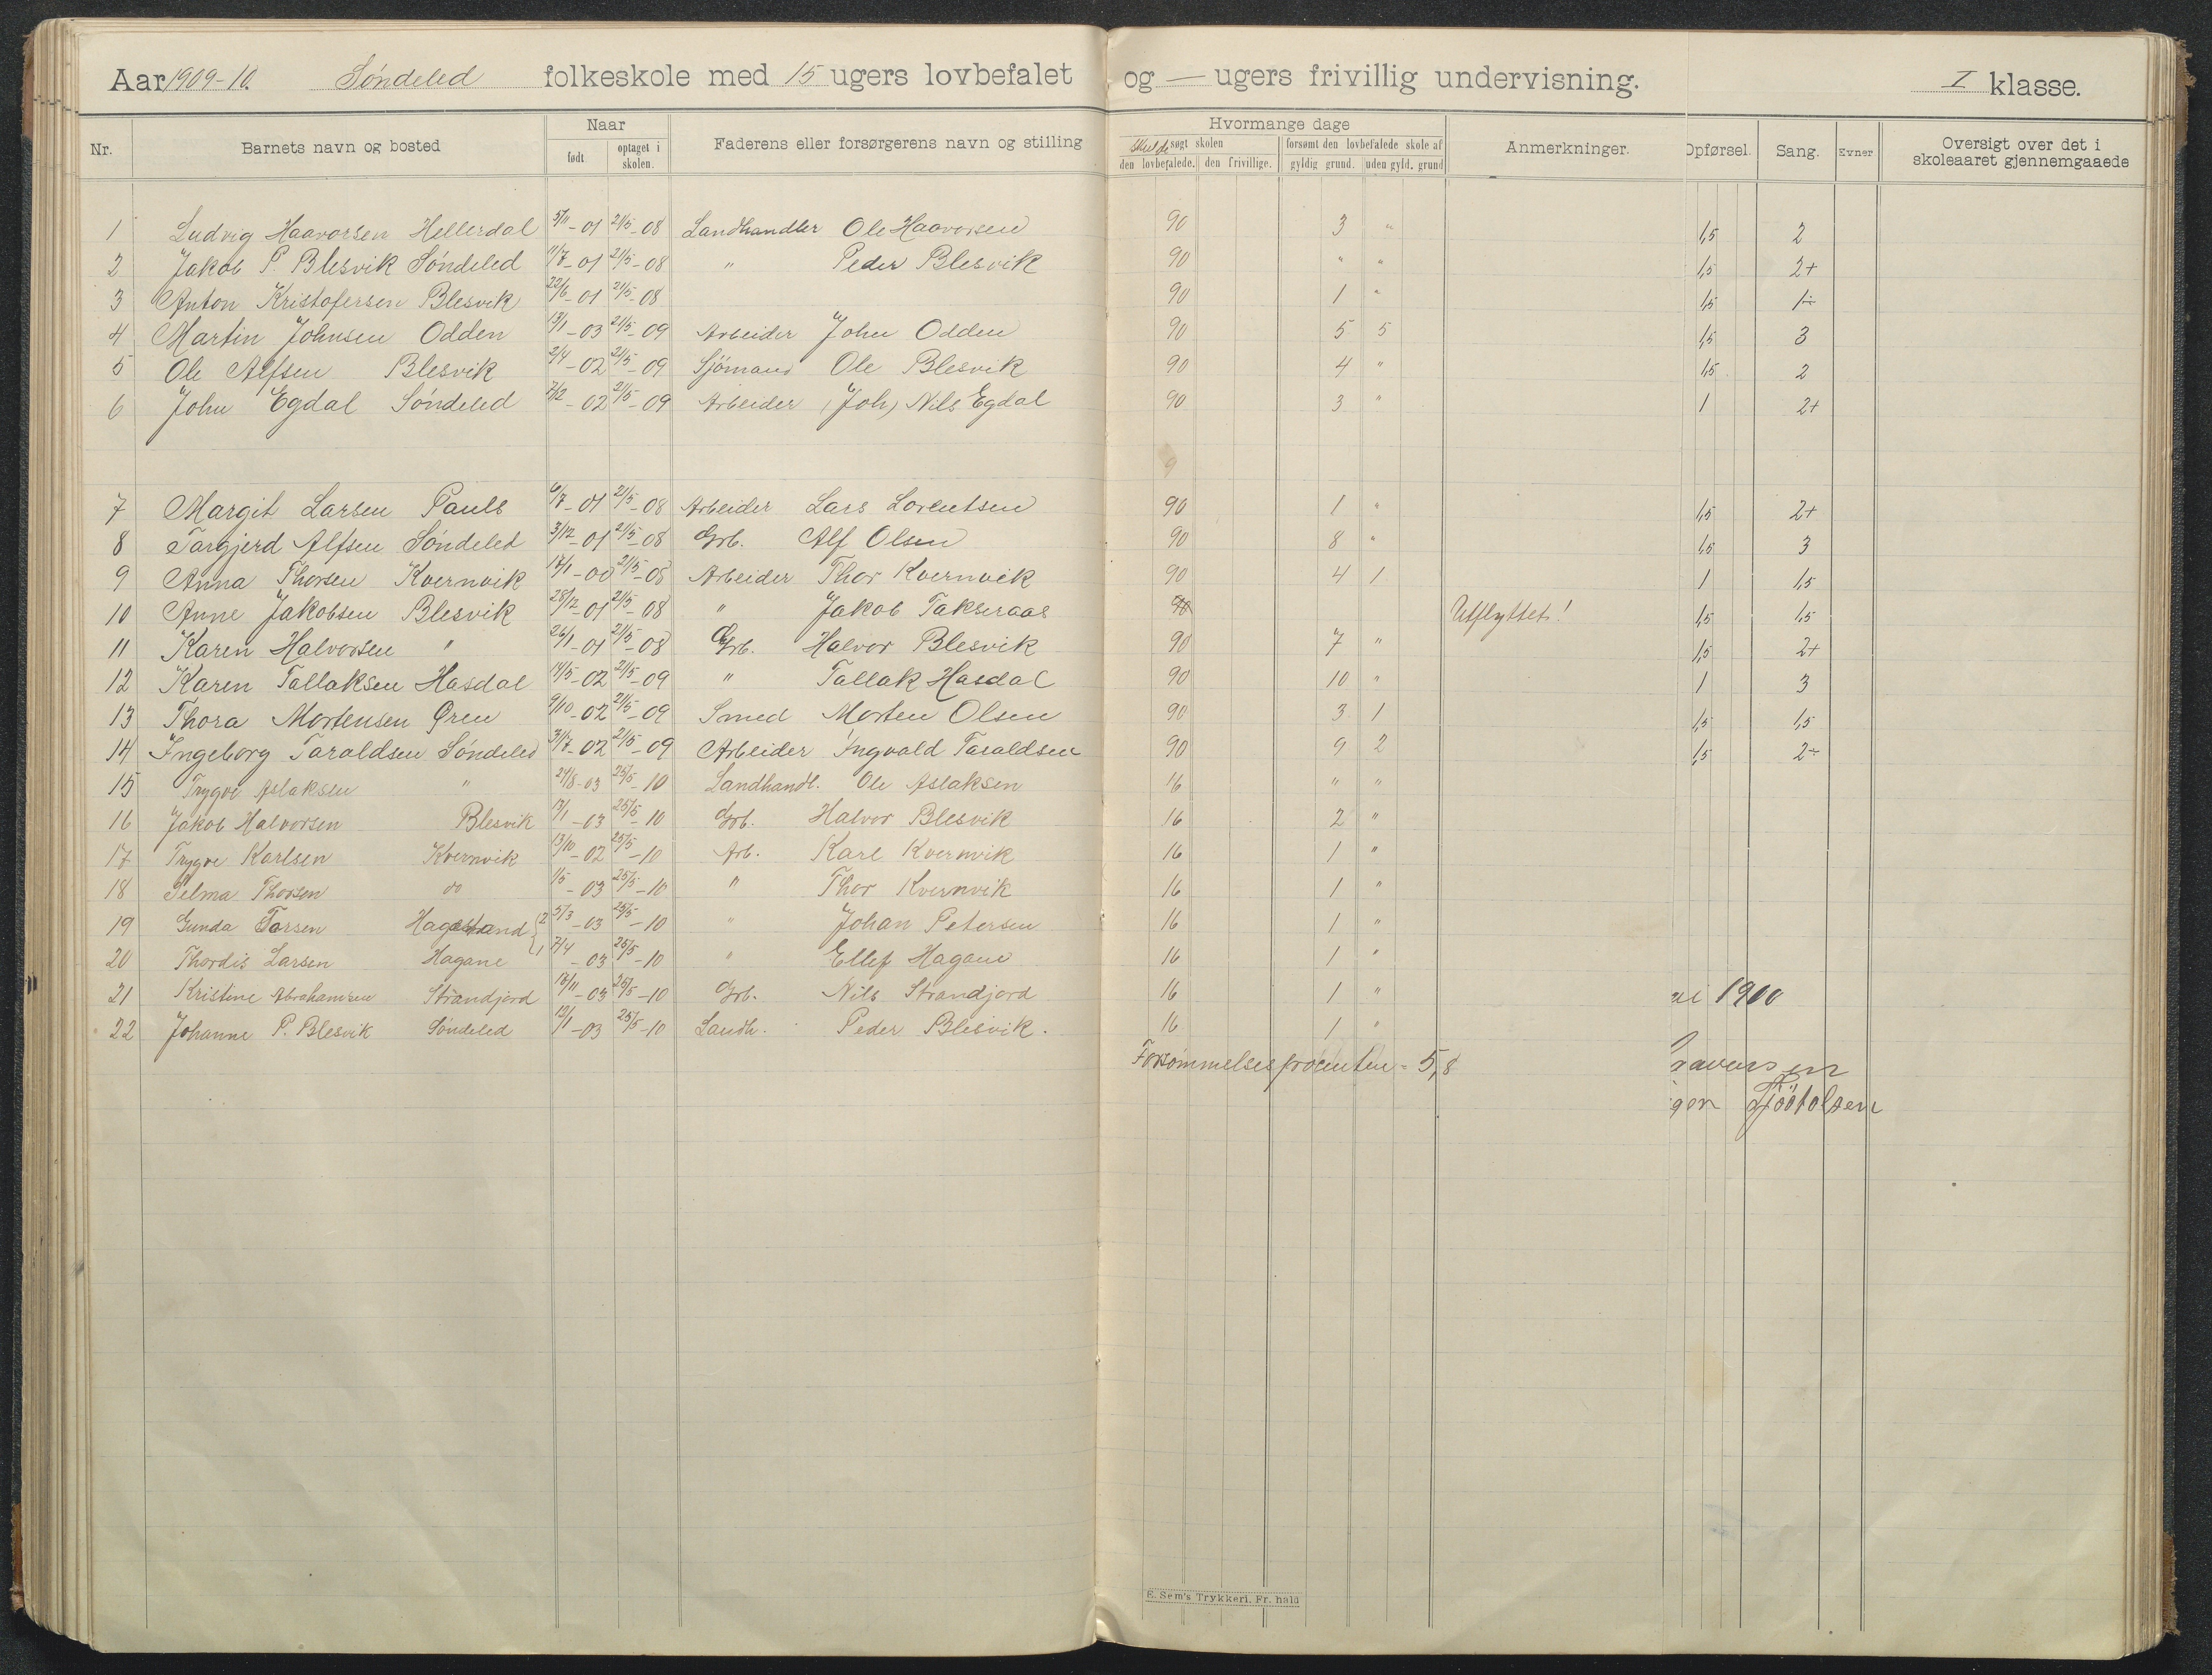 Aar 1909-10. Söndeled folkeskole med 15 ugers lovbefalet og — ugers frivillig undervisning. I klasse.
Nr. Barnets navn og bosted Naar født optaget i skolen. Faderens eller forsørgerens navn og stilling Hvormange dage Skulde søgt skolen den lovbefalede. den frivillige. forsømt den lovbefalede skole af gyldig grund. uden gyld. grund Anmerkninger. Opførsel. Sang. Evner Oversigt over det i skoleaaret gjennemgaaede
1 Ludvig Haavorsen Hellerdal 5/11-01 21/5-08 Landhandler Ole Haavorsen 90 3 " 1,5 2
2 Jakob P. Blesvik Söndeled 11/7-01 21/5-08 " Peder Blesvik 90 " " 1,5 2+
3 Anton Kristofersen Blesvik 22/6-01 21/5-08 90 1 " 1,5 1÷
4 Martin Johnsen Odden 13/1-03 21/5-09 Arbeider John Odden 90 5 5 1,5 3
5 Ole Alfsen Blesvik 2/4-02 21/5-09 Sjömand Ole Blesvik 90 4 " 1,5 2
6 John Egdal Söndeled 7/2-02 21/5-09 Arbeider (Joh) Nils Egdal 90 3 " 1 2+
9
7 Margit Larsen Pauls 6/7-01 21/5-08 Arbeider Lars Lorentsen 90 1 " 1,5 2+
8 Targjerd Alfsen Söndeled 3/12-01 21/5-08 Grb. Alf Olsen 90 8 " 1,5 3
9 Anna Thorsen Kvernvik 17/1-00 21/5-08 Arbeider Thor Kvernvik 90 4 1 1 1,5
10 Anne Jakobsen Blesvik 28/12-01 21/5-08 " Jakob Takseraas 90 Utflyttet! 1,5 1,5
11 Karen Halvorsen " 26/1-01 21/5-08 Grb. Halvor Blesvik 90 7 " 1,5 2+
12 Karen Tallaksen Hasdal 14/5-02 21/5-09 " Tallak Hasdal 90 10 " 1 3
13 Thora Mortensen Øren 9/10-02 21/5-09 Smed Morten Olsen 90 3 1 1,5 1,5
14 Ingeborg Taraldsen Söndeled 31/7-02 21/5-09 Arbeider Ingvald Taraldsen 90 9 2 1,5 2÷
15 Trygve Aslaksen " 24/8-03 25/5-10 Landhandl. Ole Aslaksen 16 " "
16 Jakob Halvorsen Blesvik 13/1-03 25/5-10 Grb. Halvor Blesvik 16 2 "
17 Trygve Karlsen Kvernvik 13/10-02 25/5-10 Arb. Karl Kvernvik 16 1 "
18 Selma Thorsen do 1/5-03 25/5-10 " Thor Kvernvik 16 1 "
19 Gunda Torsen Hagestrand 2 5/3-03 25/5-10 " Johan Petersen 16 1 "
20 Thordis Larsen Hagane 1 7/4-03 25/5-10 " Ellef Hagane 16 1 "
21 Kristine Abrahamsen Strandjord 16/11-03 25/5-10 Grb. Nils Strandjord 16 1 " 1900
22 Johanne P. Blesvik Söndeled 12/1-03 25/5-10 Landh. Peder Blesvik. 16 1 "
Forsömmelsesprocenten = 5,8
E. Sem's Trykkeri, Fr.hald